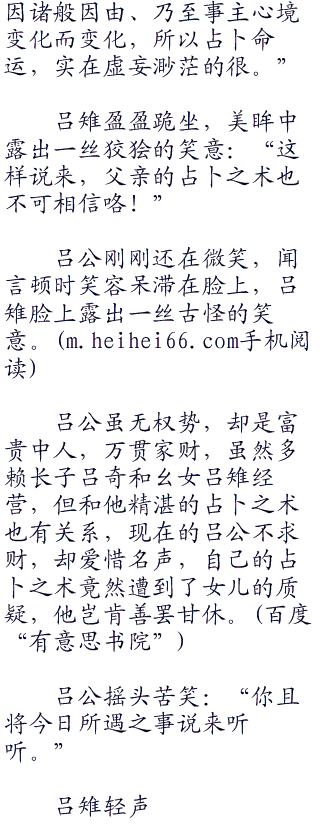 因诸般因由、乃至事主心境
变化而变化，所以占卜命
运，实在虚妄渺茫的很。”
吕雉盈盈跪坐，美眸中
露出一丝狡狯的笑意：“这
样说来，父亲的占卜之术也
不可相信咯！”
吕公刚刚还在微笑，闻
言顿时笑容呆滞在脸上，吕
雉脸上露出一丝古怪的笑
意。(m.heihei66.com手机阅
读)
吕公虽无权势，却是富
贵中人，万贯家财，虽然多
赖长子吕奇和幺女吕雉经
营，但和他精湛的占卜之术
也有关系，现在的吕公不求
财，却爱惜名声，自己的占
卜之术竟然遭到了女儿的质
疑，他岂肯善罢甘休。(百度
“有意思书院”)
吕公摇头苦笑：“你且
将今日所遇之事说来听
听。”
吕雉轻声